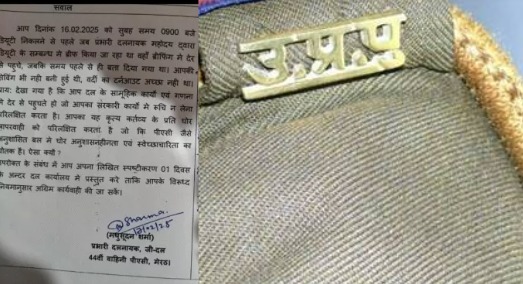 सवाल
आप दिनांक 16.02.2025 को सुबह समय 0900 बजे
ड्यूटी निकलने से पहले जब प्रभारी दलनायक महोदय द्वारा
ड्यूटी के सम्बन्ध मे ब्रीफ किया जा रहा था वहाँ ब्रीफिंग मे देर
से पहुचे, जबकि समय पहले से ही बता दिया गया था। आपकी
शेविंग भी नही बनी हुई थी, वर्दी का टर्नआउट अच्छा नही था।
प्रायः देखा गया है कि आप दल के सामूहिक कार्यो एवं गणना
मे देर से पहुचते हो जो आपका सरकारी कार्यो मे रूचि न लेना
परिलक्षित करता है। आपका यह कृत्य कर्तव्य के प्रति घोर
लापरवाही को परिलक्षित करता है जो कि पीएसी जैसे
अनुशासित बल मे घोर अनुशासनहीनता एवं स्वेच्छाचारिता का
द्योतक है। ऐसा क्यों ?
उपरोक्त के संबंध में आप अपना लिखित स्पष्टीकरण 01 दिवस
के अन्दर दल कार्यालय मे प्रस्तुत करे ताकि आपके विरूध्द
नियमानुसार अग्रिम कार्यवाही की जा सकें।
@Sharma
18/02/25
(मधुसूदन शर्मा)
प्रभारी दलनायक, जी-दल
44वीं वाहिनी पीएसी, मेरठ।
उ.प्र.पु